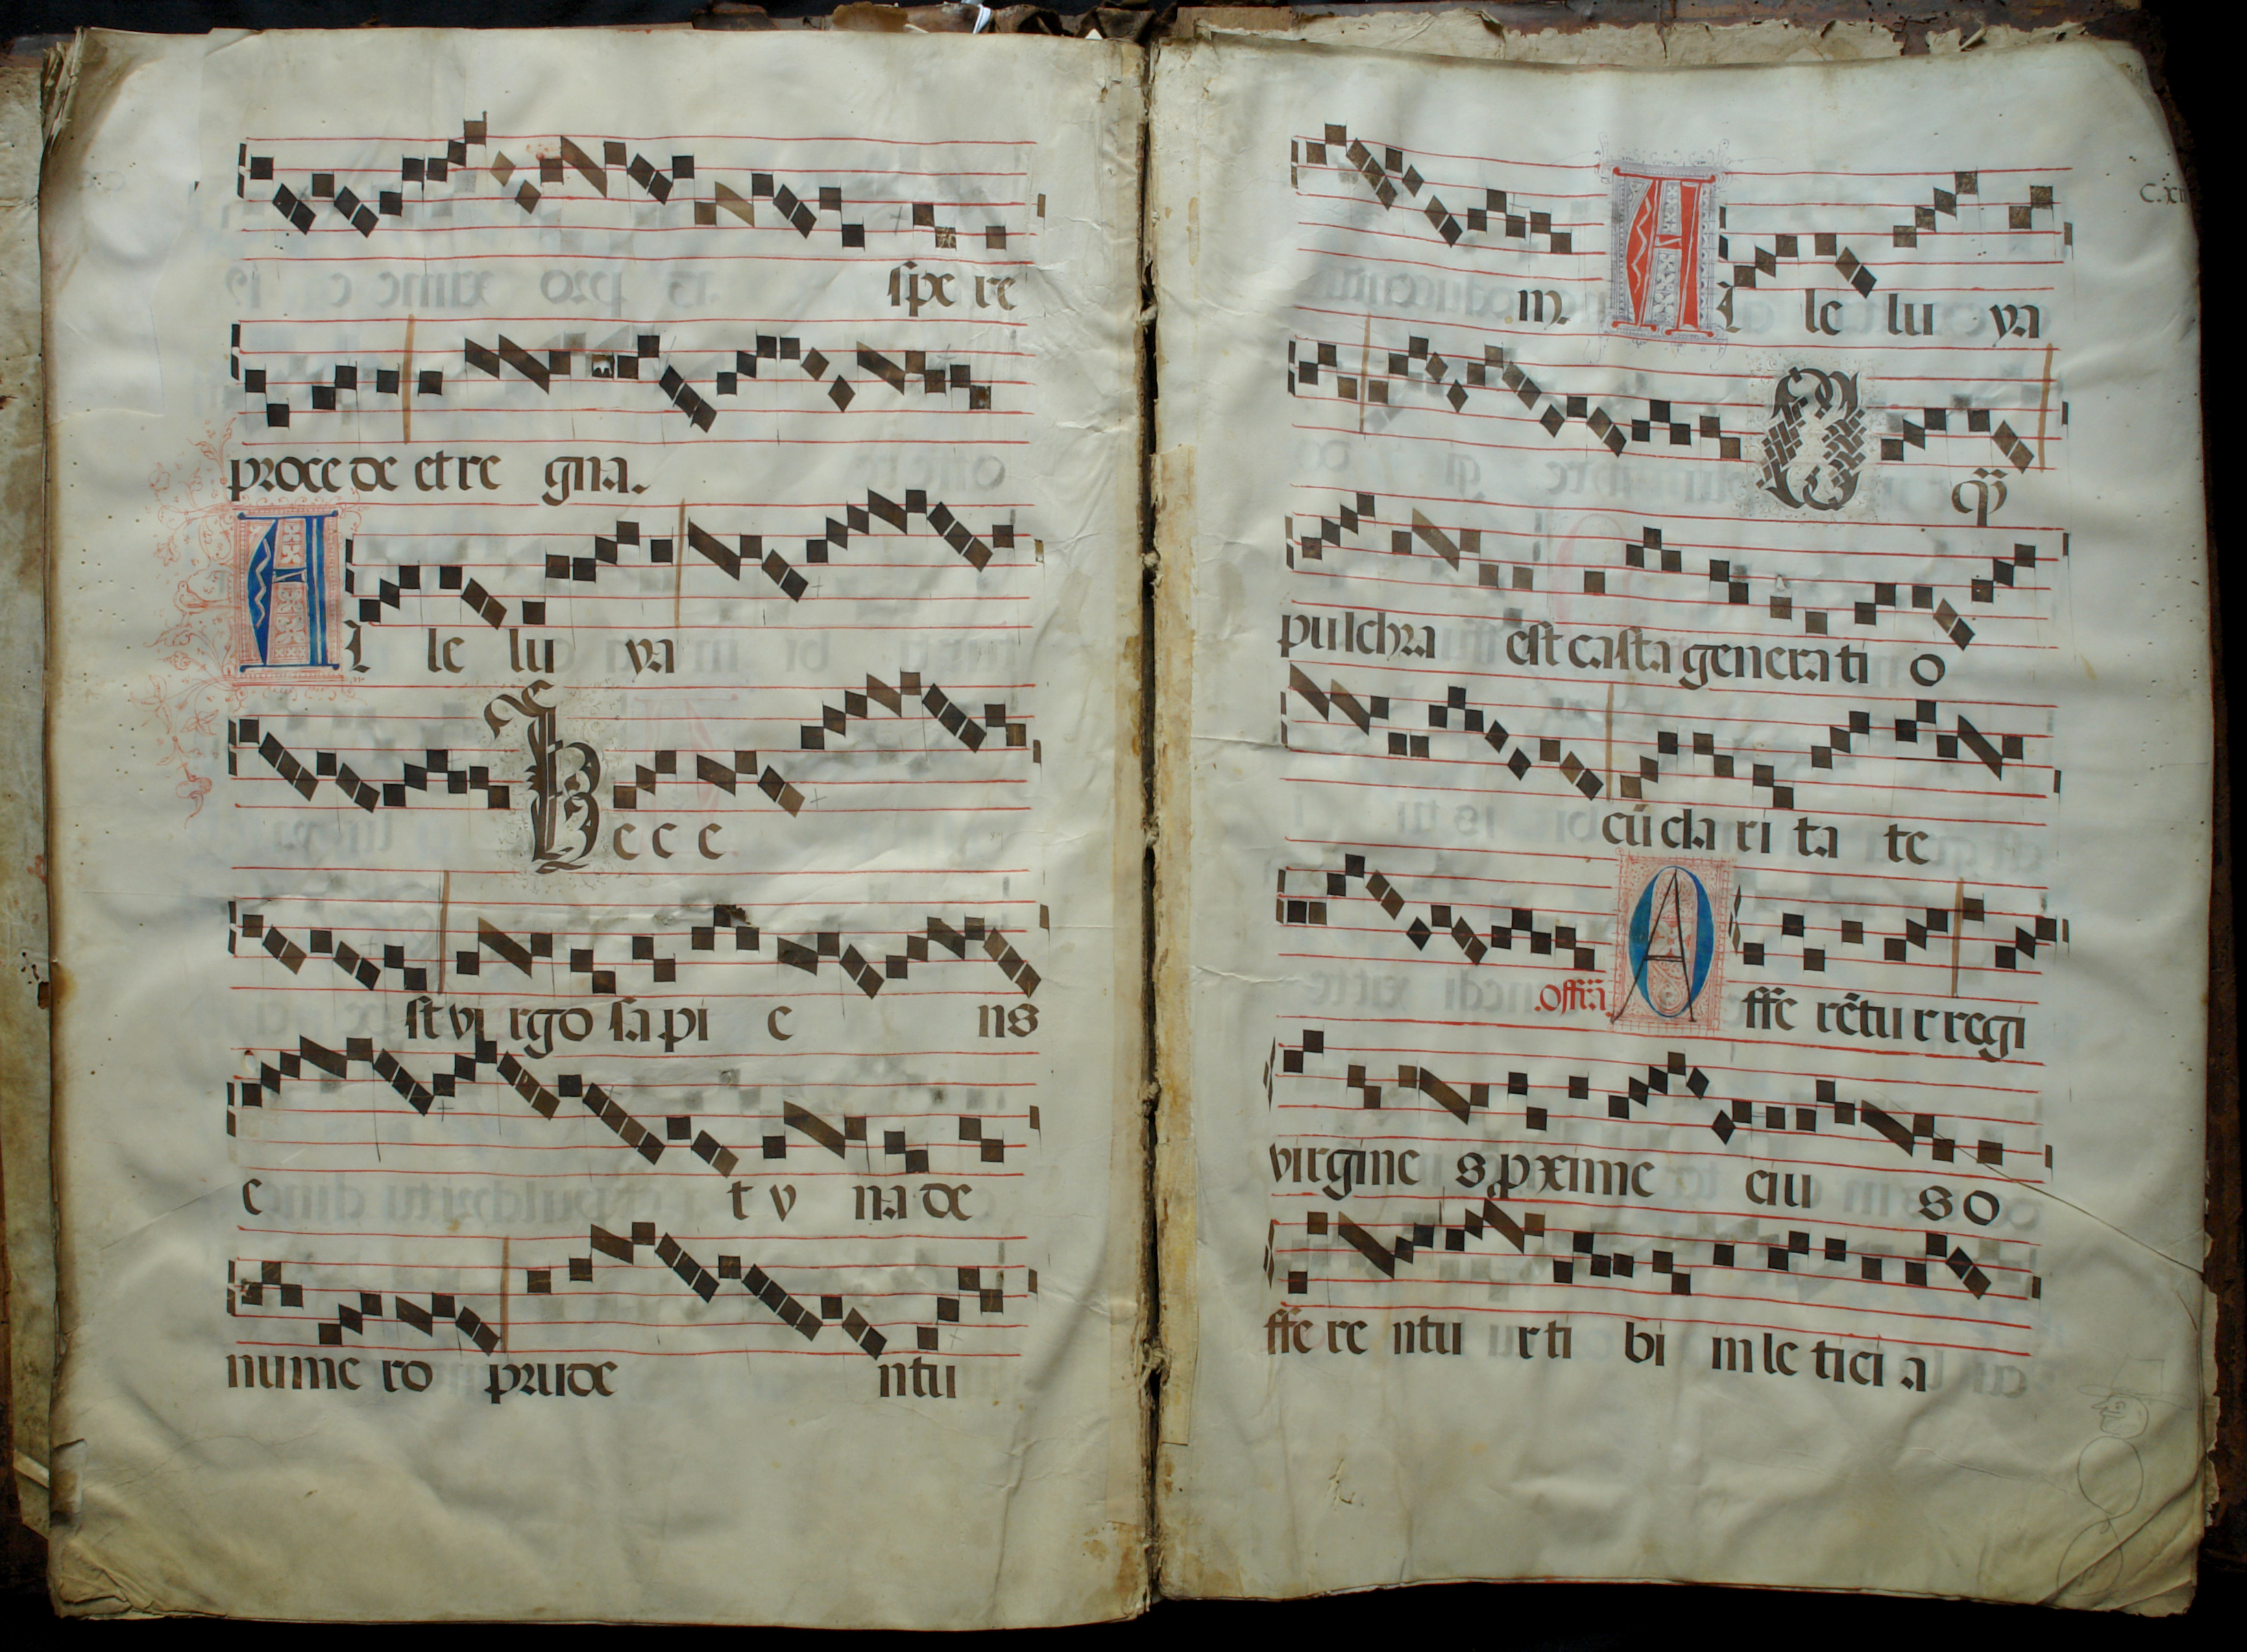 spe re
proce de et re gna.
Al le lu ya
Hec e
st vi rgo sa pi e ns
e t v na de
nume ro prude ntu
C.
m. Al le lu ya
O qͫ
pulchra est casta genera ti o
cū cla ri ta te
.Offr̄a. O ffe rētu r regi
virgine s p̱xime eiu s o
ffe re ntu ur ti bi in le tici a